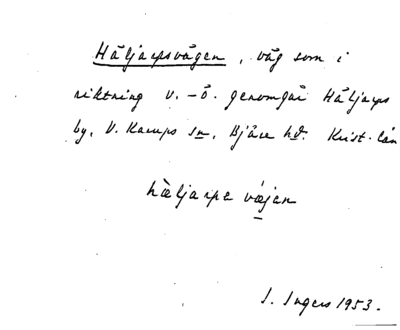 Häljarpsvägen, väg som i
riktning v.-ö. genomgår Häljarps
by, V. Karups sn, Bjäre hd. Krist. län
hæljarpe væjen
I. Ingers 1953.